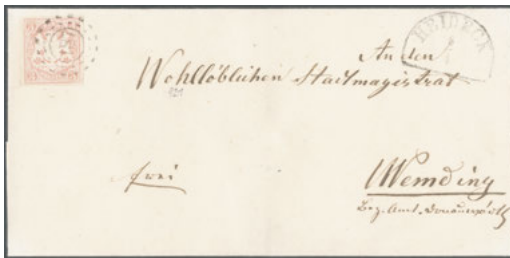 HEIDECK
An den
Wohllöblichen Stadtmagistrat
frei
Wemding
Bez. Amt. Donauwörth